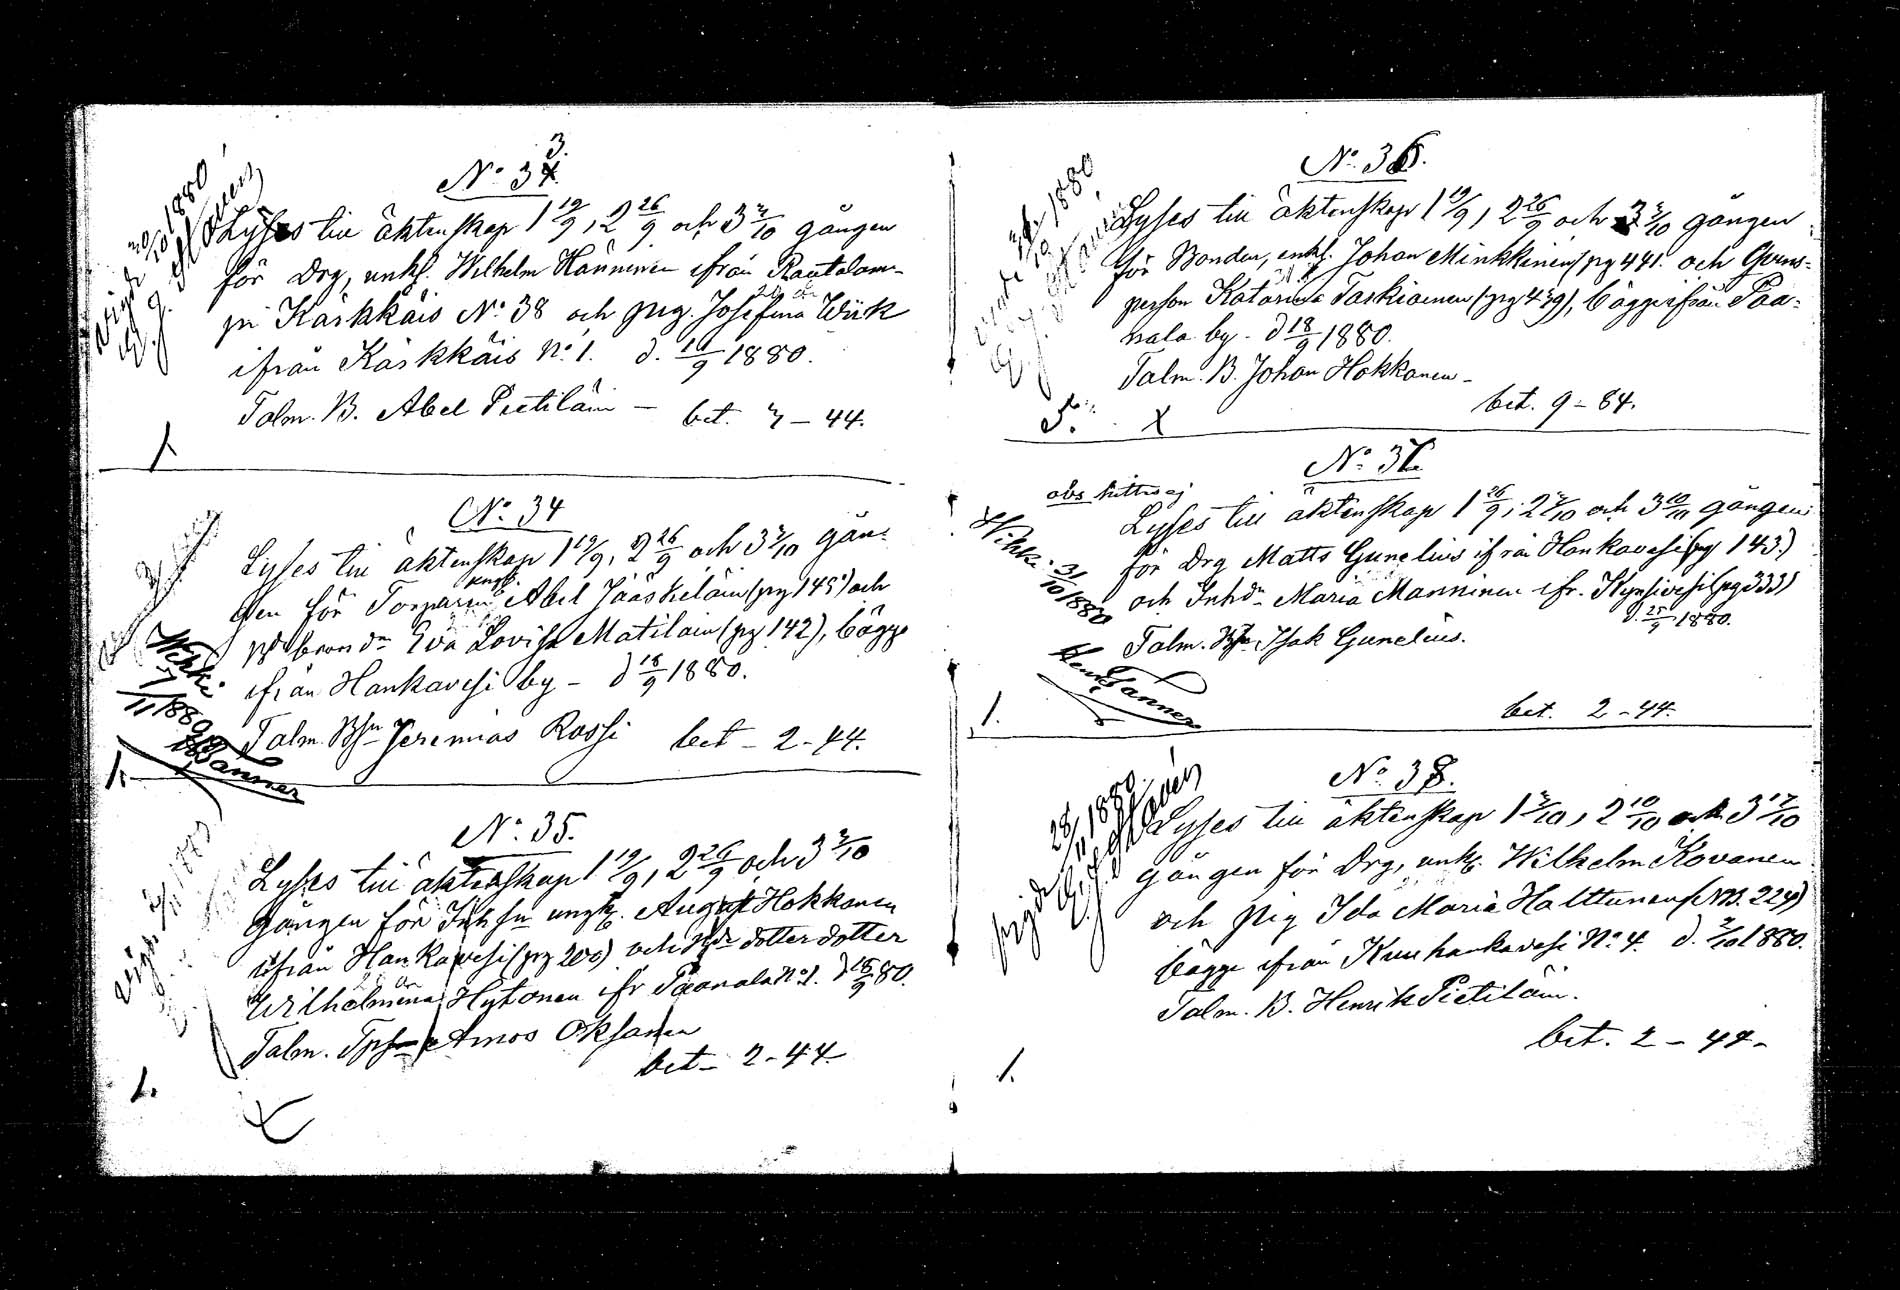 No. 33.
Lyses till äktenskap 1 19/9, 2 26/9 och 3 3/10 gången
för Drg, unkl. Wilhelm Hänninen ifrån Rautalam-
pi Kärkkäis No. 38 och pig. Josefina Wiik
ifrån Kärkkäis No. 1. d. 18/9 1880.
Talm. B. Abel Pietiläin — bet. 7 — 44.
1
Vigde 30/10 1880
No. 34
Lyses till äktenskap 1 19/9, 2 26/9 och 3 3/10 gån-
gen för Torparen ungk. Abel Jääskeläin (pg 145) och
Eva Lovisa Matilain (pg 142), bägge
ifrån Hankavesi by — d 18/9 1880.
Talm. Bsn Jeremias Rossi bet — 2 - 44.
Wihki
7/11 1880
Tanner
1.
No. 35.
Lyses till äktenskap 1 19/9, 2 26/9 och 3 3/10
gången för Inhsn ungk. August Hokkanen
ifrån Hankavesi (pg 200) och dotter dotter
Wilhelmina Hytönen ifr Paanala No. 1. d 18/9 80.
Talm. Tpsn Amos Oksanen
bet — 2 - 44
1.
No. 36.
Lyses till äktenskap 1 19/9, 2 26/9 och 3 3/10 gången
för Bonden, enkl. Johan Minkkinen (pg 441. och Qvins-
person Katarina Taskiainen (pg 479), bägge ifrån Paa-
nala by — d 18/9 1880.
Talm. B. Johan Hokkanen —
bet. 9 - 84.
5. X
No. 37
obs hittas ej
Lyses till äktenskap 1 26/9, 2 3/10 och 3 10/10 gången
för Drg Matts Gunelius ifrån Hankavesi (pg 143.)
och Inhdr Maria Manninen ifr. Kynsivesi (pg 333)
d. 25/9 1880.
Talm. Isak Gunelius.
Wihki 31/10 1880
Tanner
1. bet. 2 - 44.
No. 38.
Lyses till äktenskap 1 3/10, 2 10/10 och 3 17/10
gången för Drg, unk. Wilhelm Kovanen
och pig Ida Maria Halttunen (NB. 229)
bägge ifrån Kuuhankavesi No. 4. d. 2/10 1880.
Talm. B. Henrik Pietiläin.
bet. 2 — 44 —
Vigde 28/11 1880.
1.